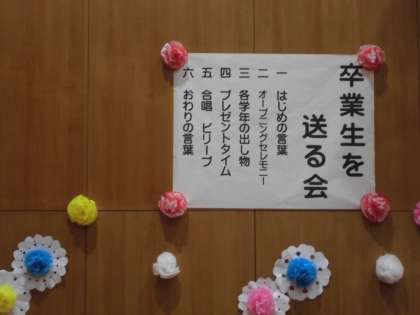 卒業生を
送る会
一 はじめの言葉
二 オープニングセレモニー
三 各学年の出し物
四 プレゼントタイム
五 合唱 ビリーブ
六 おわりの言葉